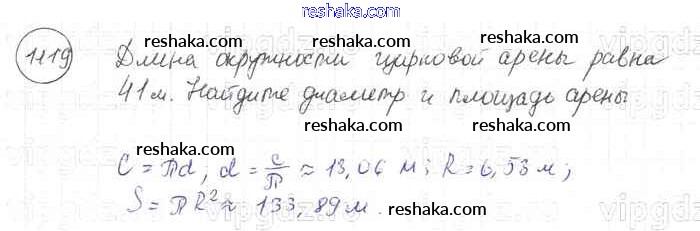 reshaka.com
1119 Длина окружности цирковой арены равна
41 м. Найдите диаметр и площадь арены
C = Пd; d = C/П ≈ 13,06 м; R = 6,53 м;
S = ПR² ≈ 133,89 м.
reshaka.com
reshaka.com
reshaka.com
reshaka.com
reshaka.com
reshaka.com
reshaka.com